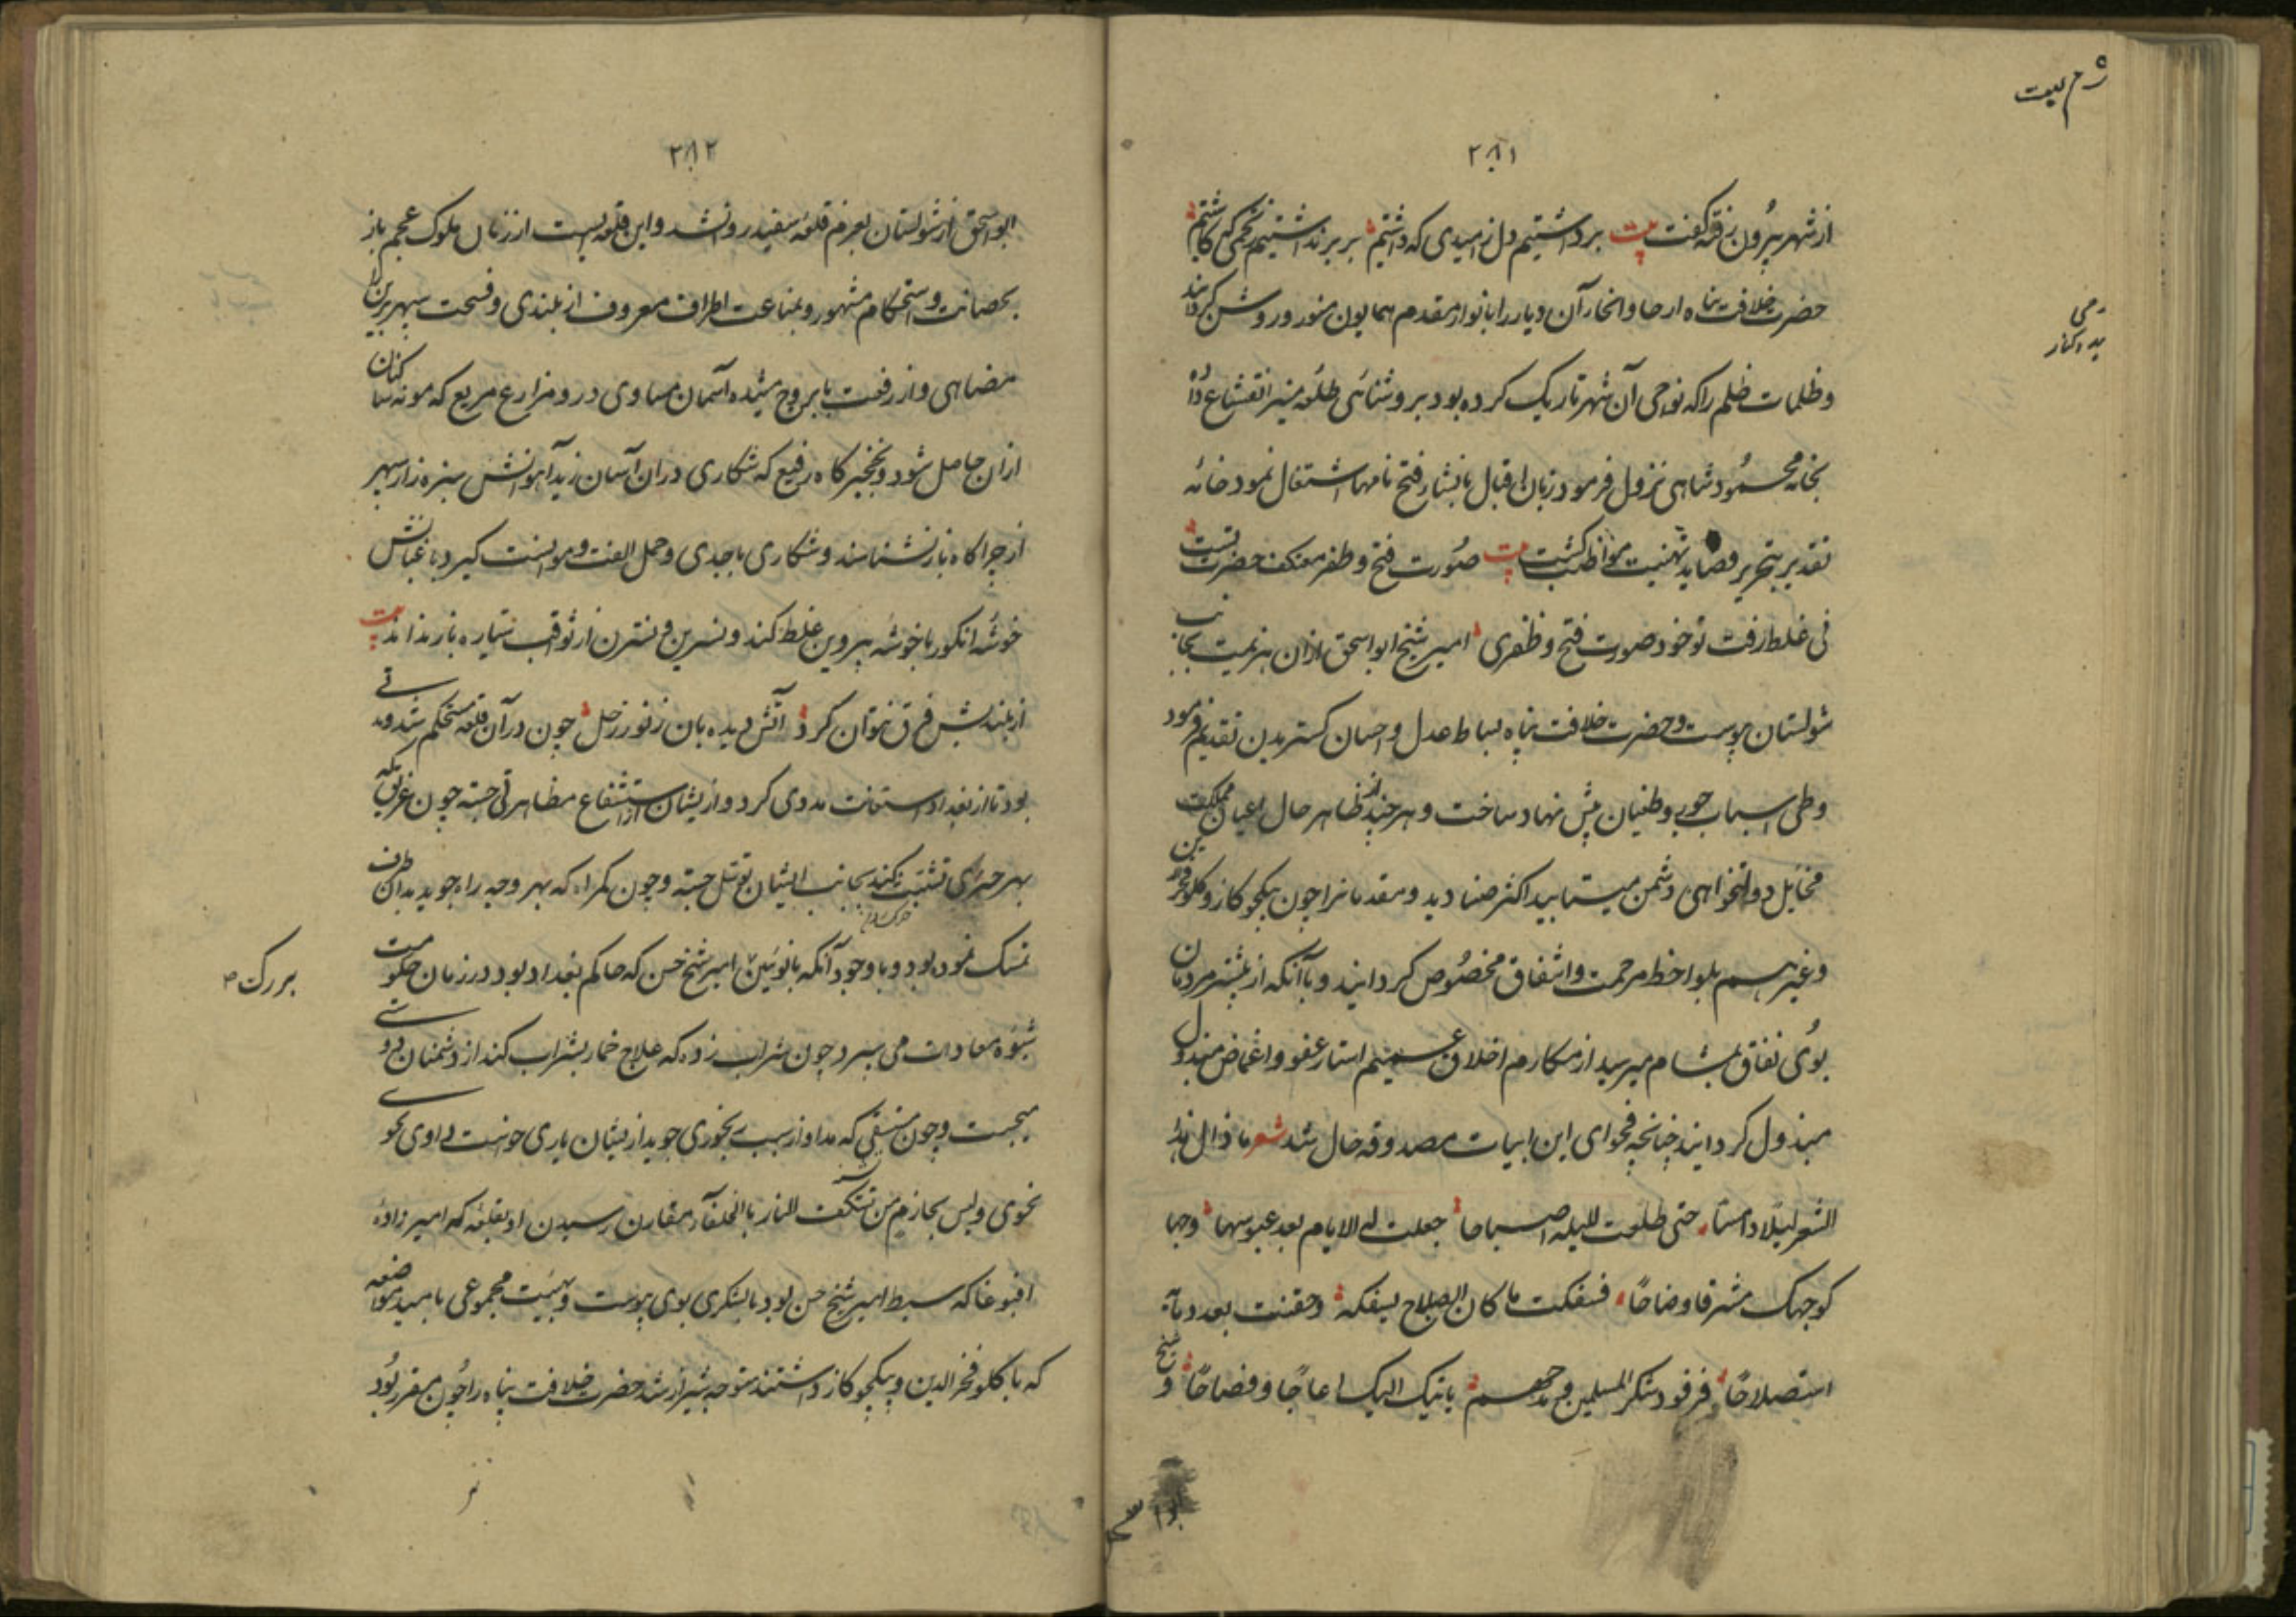 ۲۸۱
از شهر بیرون رفته گفت بیت برداشتیم دل ز امیدی که داشتیم بر برنداشتیم ز تخمی که کاشتیم
حضرت خلافت پناه ارجا و انحاء آن دیار را بانوار مقدم همایون منور و روشن گردانید
و ظلمات ظلم را که نواحی آن شهر تاریک کرده بود بروشنائی طلعه منیر انقشاع داد
بخانه محمود شاهی نزول فرمود زبان اقبال بانشاء فتح نامها اشتغال نمود خامه
تقدیر بتحریر قصاید تهنیت مواظب گشت بیت صورت فتح و ظفر معتکف حضرت تست
نی غلط رفت تو خود صورت فتح و ظفری امیر شیخ ابو اسحق ازان هزیمت بجانب
شولستان پیوست و حضرت خلافت پناه بساط عدل و احسان گستریدن تقدیم فرمود
و طی اسباب جور و طغیان پیش نهاد ساخت و هر چند از ظاهر حال اعیان مملکت
مخایل دولتخواهی دشمن میتابید اکثر صنادید و مقدمانرا چون بیکجوکاز و کلو فخر
وغیرهم بلواحظ مرحمت و اشفاق مخصوص گردانید و با آنکه از بیشتر مردمان
بوی نفاق بمشام میرسید از مکارم اخلاق عمیم استار عفو و اغماض مبذول
مبذول گردانید چنانچه فحوای این ابیات مصدوقه حال شد شعر ما ذال هذا
الثغر لیلا دامسا حتی طلعت للیله اصباحا جعلت لی الایام بعد عبوسها وجها
کوجهک مشرقا وضاحا فسفکت ما کان الصلاح بسفکه وحقنت بعد دمآء
استصلاحا فرفود شکر المسلمین و مدحهم یاتیک الیک اعاجا و فصاحا و شیخ
۲۸۲
ابو اسحق از شولستان بعزم قلعه سفید روانشد و این قلعه ایست از زمان ملوک عجم باز
بحصانت و استحکام مشهور و بمناعت اطراف معروف از بلندی و فسحت سپهر برین را
مضاهی و از رفعت با بروج مشیده آسمان مساوی درو مزارع مریع که مونه ساکنان
ازان حاصل شود و نخجیرگاه رفیع که شکاری دران آسان زید آهوانش سبزه زار سپهر
از چراگاه باز نشناسند و شکاری با جدی و حمل الفت و موانست گیرد باغبانش
خوشه انگور با خوشه پروین غلط کند و نسرین و نسترن از ثواقب سیاره باز نداند بیت
از بلندیش فرق نتوان کرد آتش دیده بان ز نور زحل چون در آن قلعه مستحکم شد و مدتی
بود تا از بغداد استعانت مددی کرد و از ایشان استشفاع مظاهرتی جسته چون غریق که
بهر چیزی تشبث کند بجانب ایشان توسل جسته و چون گمراه که بهر وجه راه جوید بدان طرف
تمسک نموده بود و با وجود آنکه با نوئین امیر شیخ حسن که حاکم بغداد بود در زمان حکومت
شیوه معادات می سپرد چون شراب زده که علاج خمار بشراب کند از دشمنان دوستی
میجست و چون مستسقی که مداوا از سبب رنجوری جوید از ایشان یاری خواست
نحوی و لیس بحازم من تنکف للنار بالحلفآء مقارن رسیدن او بقلعه که امیر زاده
اقبوغا که سبط امیر شیخ حسن بود با لشکری بوی پیوست و بهیئت مجموعی بامید مواضعه
که با کلو فخر الدین و بیکجوکاز داشتند متوجه شیراز شد حضرت خلافت پناه را چون مقرر بود